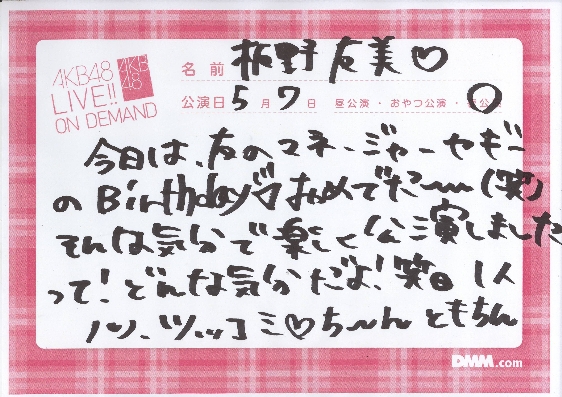 AKB48
LIVE!!
ON DEMAND
AKB
48
名前 板野友美♡
公演日 5月7日 昼公演・おやつ公演・
今日は、友のマネージャーヤギー
のBirthday♡おめでた〜(笑)
そんな気分で楽しく公演しました
って!どんな気分だよ!笑 1人
ノリ、ツッコミ♡ち〜ん ともちん
DMM.com